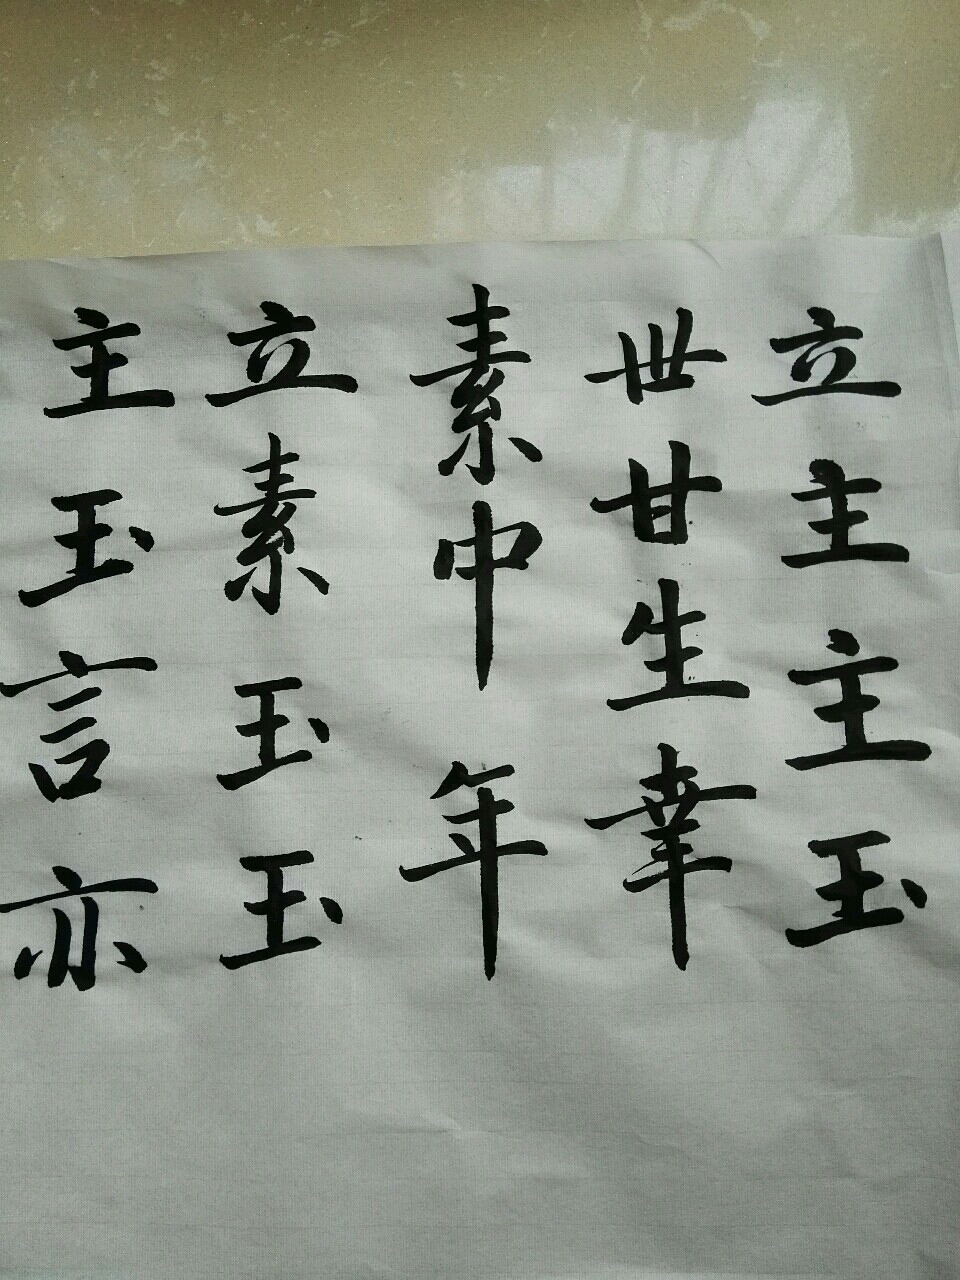 立主主玉
世甘生幸
素中年
立素玉玉
主玉言亦